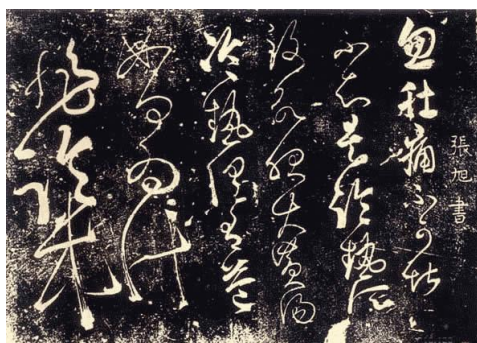 張旭書
忽肚痛不可堪
不知是冷熱所
致欲服大黄湯
冷熱俱有益
如何為計